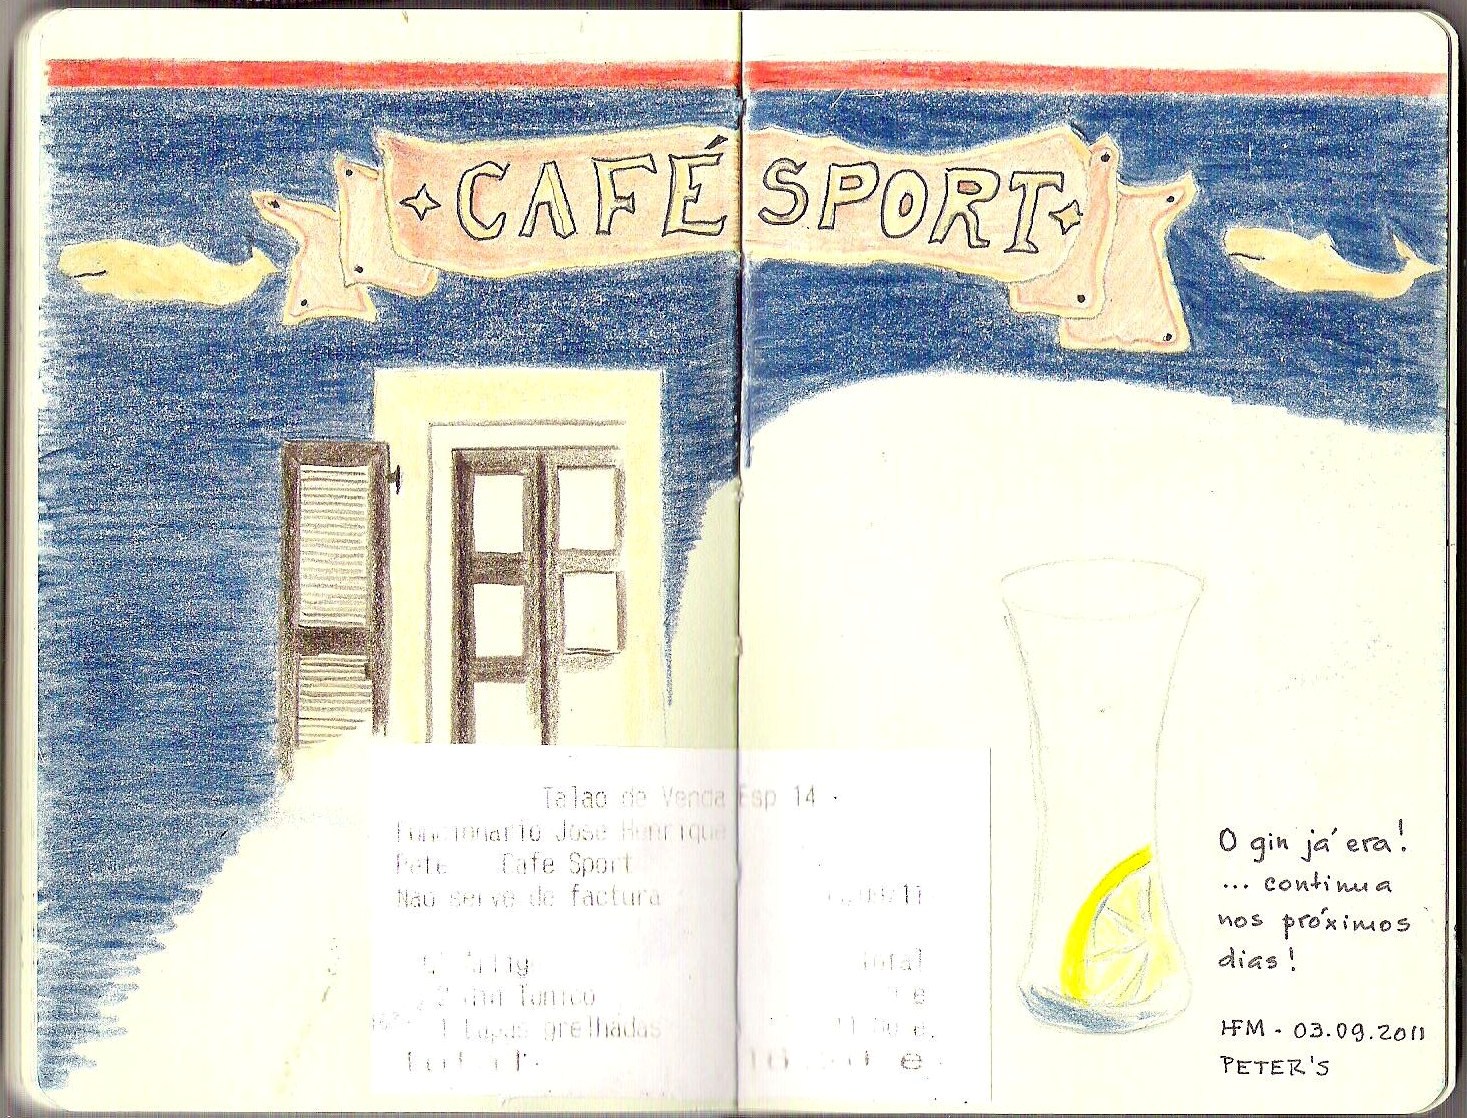 CAFÉ SPORT
Talao de Venda Esp 14
Funcionario Jose Henrique
Pete Cafe Sport
Nao serve de factura
Total
Tonico
1 Lapas grelhadas
Total
O gin já era!
... continua
nos próximos
dias!
HFM - 03.09.2011
PETER'S